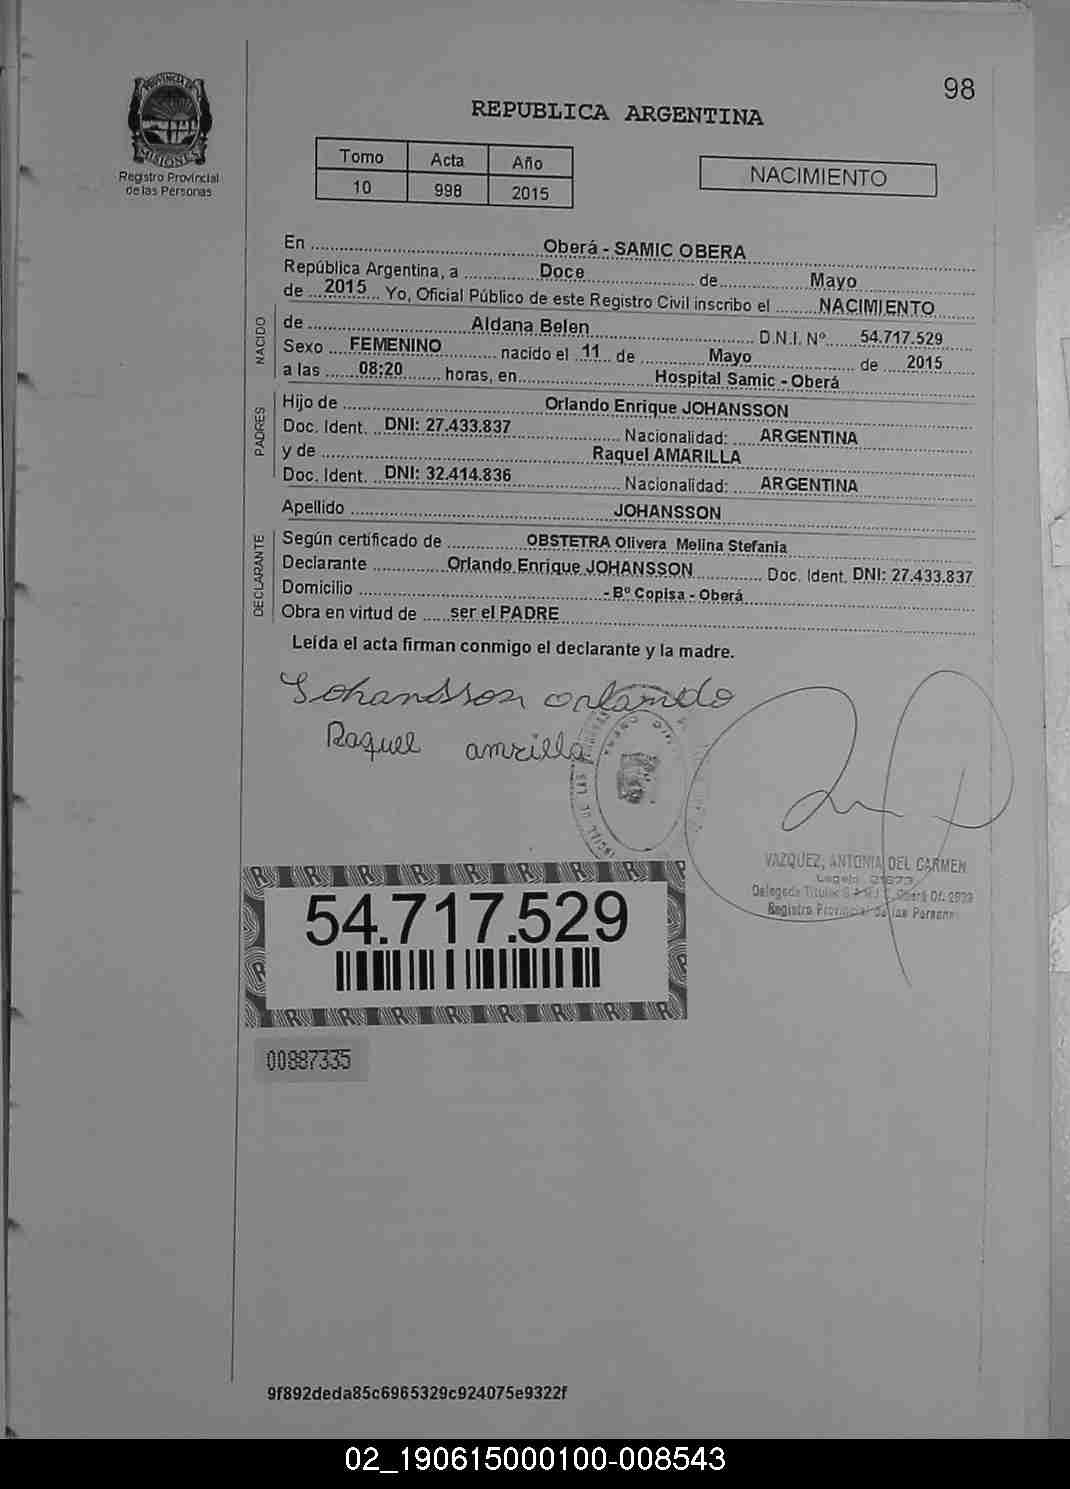 98
PROVINCIA DE
MISIONES
Registro Provincial
de las Personas
REPUBLICA ARGENTINA
Tomo Acta Año
10 998 2015
NACIMIENTO
En Oberá - SAMIC OBERA
República Argentina, a Doce de Mayo
de 2015 Yo, Oficial Público de este Registro Civil inscribo el NACIMIENTO
NACIDO
de Aldana Belen D.N.I. Nº 54.717.529
Sexo FEMENINO nacido el 11 de Mayo de 2015
a las 08:20 horas, en Hospital Samic - Oberá
PADRES
Hijo de Orlando Enrique JOHANSSON
Doc. Ident. DNI: 27.433.837 Nacionalidad: ARGENTINA
y de Raquel AMARILLA
Doc. Ident. DNI: 32.414.836 Nacionalidad: ARGENTINA
Apellido JOHANSSON
DECLARANTE
Según certificado de OBSTETRA Olivera Melina Stefania
Declarante Orlando Enrique JOHANSSON Doc. Ident. DNI: 27.433.837
Domicilio - Bº Copisa - Oberá
Obra en virtud de ser el PADRE
Leída el acta firman conmigo el declarante y la madre.
Johansson orlando
Raquel amrilla
VAZQUEZ, ANTONIA DEL CARMEN
Delegada Titular
Registro Provincial de las Personas
54.717.529
00887335
9f892deda85c6965329c924075e9322f
02_190615000100-008543